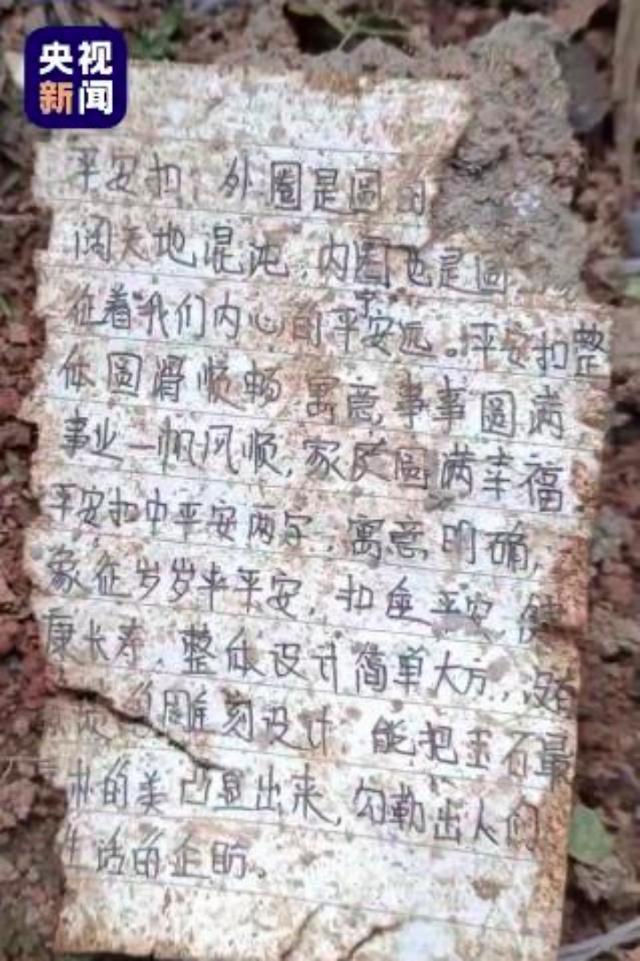 央视
新闻
平安扣，外圈是圆的
阔天地混沌，内圈也是圆
征着我们内心的平安
宁
远。平安扣整
体圆滑顺畅 寓意事事圆满
事业一帆风顺，家庭圆满幸福
平安扣中平安两字，寓意明确，
象征岁岁平平安，扣住平安 健
康长寿。整体设计简单大方，没有
雕刻设计 能把玉石最
的美凸显出来，勾勒出人们
生活的企盼。